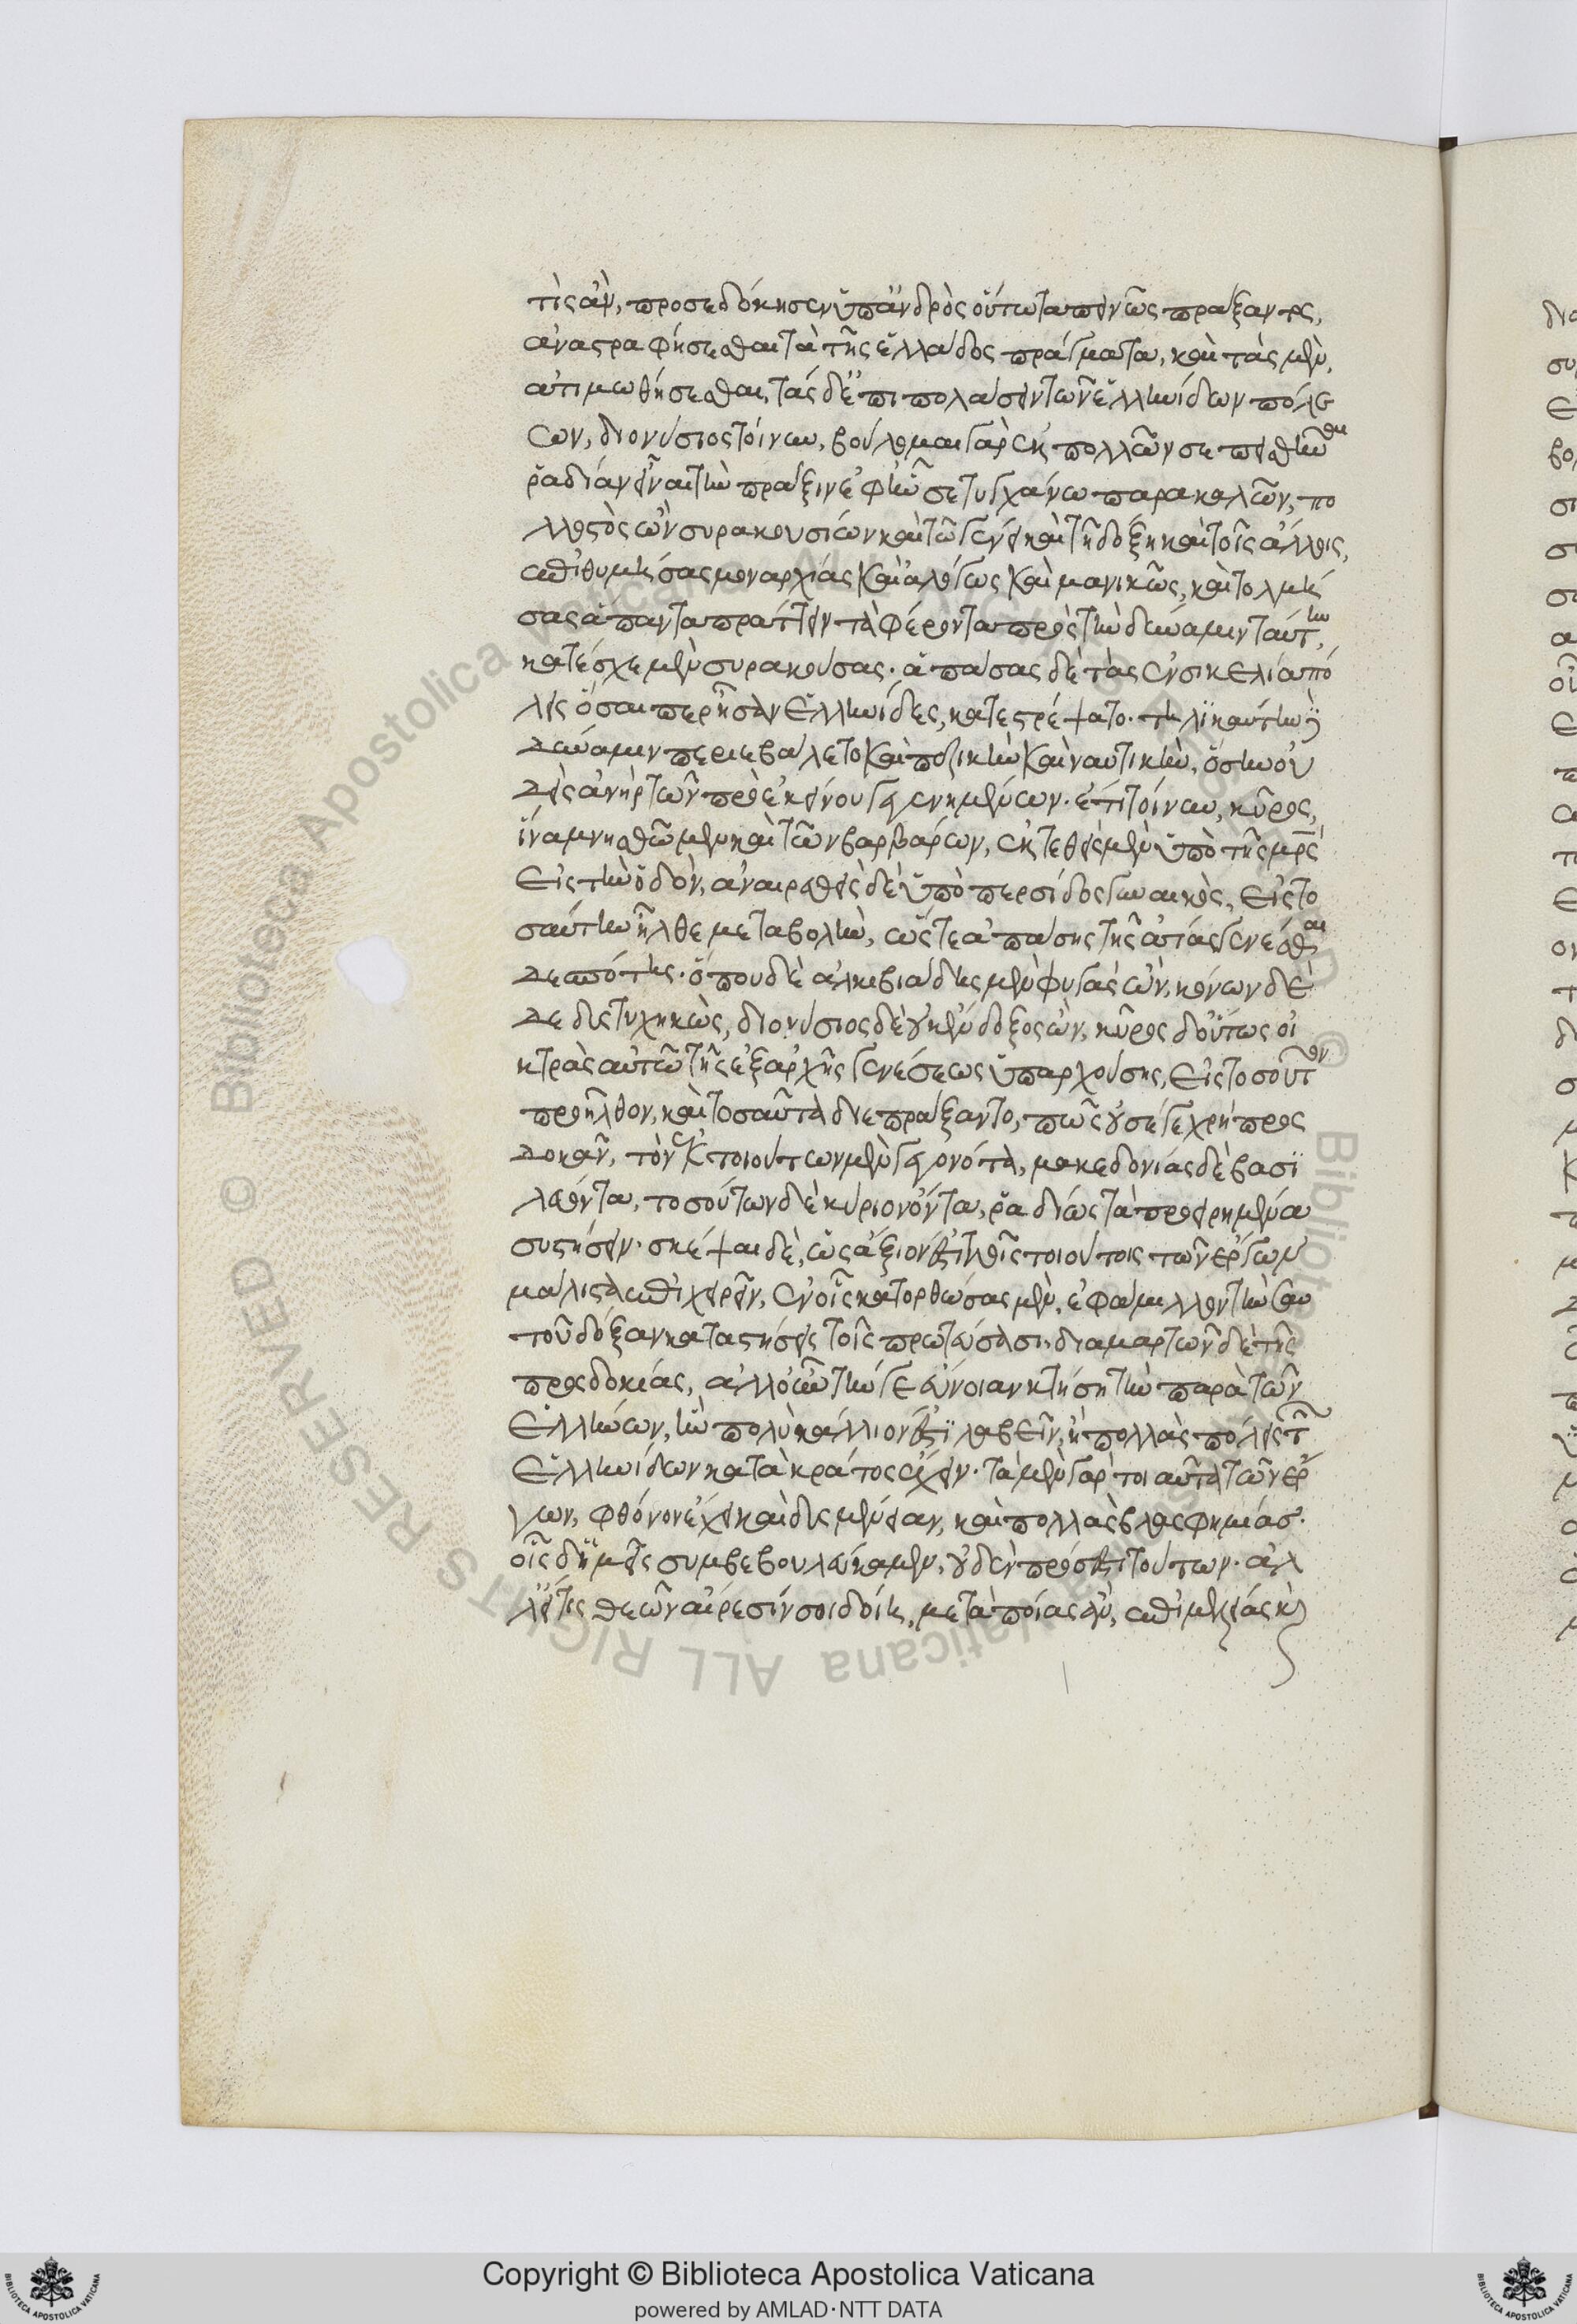 τίς ἂν, προσεδόκησεν ὑπ' ἀνδρὸς οὕτω ταπεινῶς πράξαντος,
ἀναστραφήσεσθαι τὰ τῆς ἑλλάδος πράγματα, καὶ τὰς μὲν,
ἀτιμωθήσεσθαι, τὰς δ' ἐπιπολάσειν τῶν ἑλληνίδων πόλε
ων, διονύσιος τοίνυν, βούλομαι γὰρ ἐκ πολλῶν σε πεισθῆναι
ῥαδίαν εἶναι τὴν πρᾶξιν ἐφ' ἥν σε τυγχάνω παρακαλῶν, πο
λλοστὸς ὢν συρακουσίων καὶ τῶ γένει καὶ τῇ δόξῃ καὶ τοῖς ἄλλοις,
ἐπιθυμήσας μοναρχίας καὶ ἀλόγως καὶ μανικῶς, καὶ τολμή
σας ἅπαντα πράττειν τὰ φέροντα πρὸς τὴν δύναμιν ταύτην,
κατέσχε μὲν συρακούσας. ἁπάσας δὲ τὰς ἐν σικελία πό
λεις ὅσαι περ ἦσαν ἑλληνίδες, κατεστρέψατο. τηλικαύτην δὲ
δύναμιν περιεβάλετο καὶ πεζικὴν καὶ ναυτικὴν, ὅσην οὐ
δεὶς ἀνὴρ τῶν πρὸ ἐκείνου γεγενημένων. ἔτι τοίνυν, κῦρος,
ἵνα μνησθῶμεν καὶ τῶν βαρβάρων, ἐκτεθεὶς μὲν ὑπὸ τῆς μητρὸς
εἰς τὴν ὁδὸν, ἀναιρεθεὶς δὲ ὑπὸ περσίδος γυναικὸς, εἰς το
σαύτην ἦλθε μεταβολὴν, ὥστε ἁπάσης τῆς ἀσίας γενέσθαι
δεσπότης. ὅπου δὲ ἀλκιβιάδης μὲν φυγὰς ὢν, κόνων δὲ
δεδυστυχηκὼς, διονύσιος δὲ οὐκ ἔνδοξος ὢν, κῦρος δ' οὕτως οἰ
κτρᾶς αὐτῶ τῆς ἐξαρχῆς γενέσεως ὑπαρχούσης, εἰς τοσοῦτον
προῆλθον, καὶ τοσαῦτα διεπράξαντο, πῶς οὐ σέ γε χρὴ προσ
δοκᾶν, τὸν ἐκ τοιούτων μὲν γεγονότα, μακεδονίας δὲ βασι
λεύοντα, τοσούτων δὲ κύριον ὄντα, ῥαδίως τὰ προειρημένα
συστήσειν. σκέψαι δὲ, ὡς ἄξιόν ἐστι τοῖς τοιούτοις τῶν ἔργων
μάλιστα ἐπιχειρεῖν, ἐν οἷς κατορθώσας μὲν, ἐφάμιλλον τὴν σαυ
τοῦ δόξαν καταστήσεις τοῖς πρωτεύσασι. διαμαρτὼν δὲ τῆς
προσδοκίας, ἀλλ' οὖν τήν γε εὔνοιαν κτήσῃ τὴν παρὰ τῶν
ἑλλήνων, ἣν πολὺ κάλλιόν ἐστι λαβεῖν, ἢ πολλὰς πόλεις τῶν
ἑλληνίδων κατὰ κράτος ἑλεῖν. τὰ μὲν γὰρ τοιαῦτα τῶν ἔρ
γων, φθόνον ἔχει καὶ δυσμένειαν, καὶ πολλὰς βλασφημίας.
οἷς δ' ἡμεῖς συμβεβουλεύκαμεν, οὐδὲν πρόσεστι τούτων. ἀλ
λ' εἴ τις θεῶν αἵρεσίν σοι δοίη, μετὰ ποίας ἂν, ἐπιμελείας καὶ